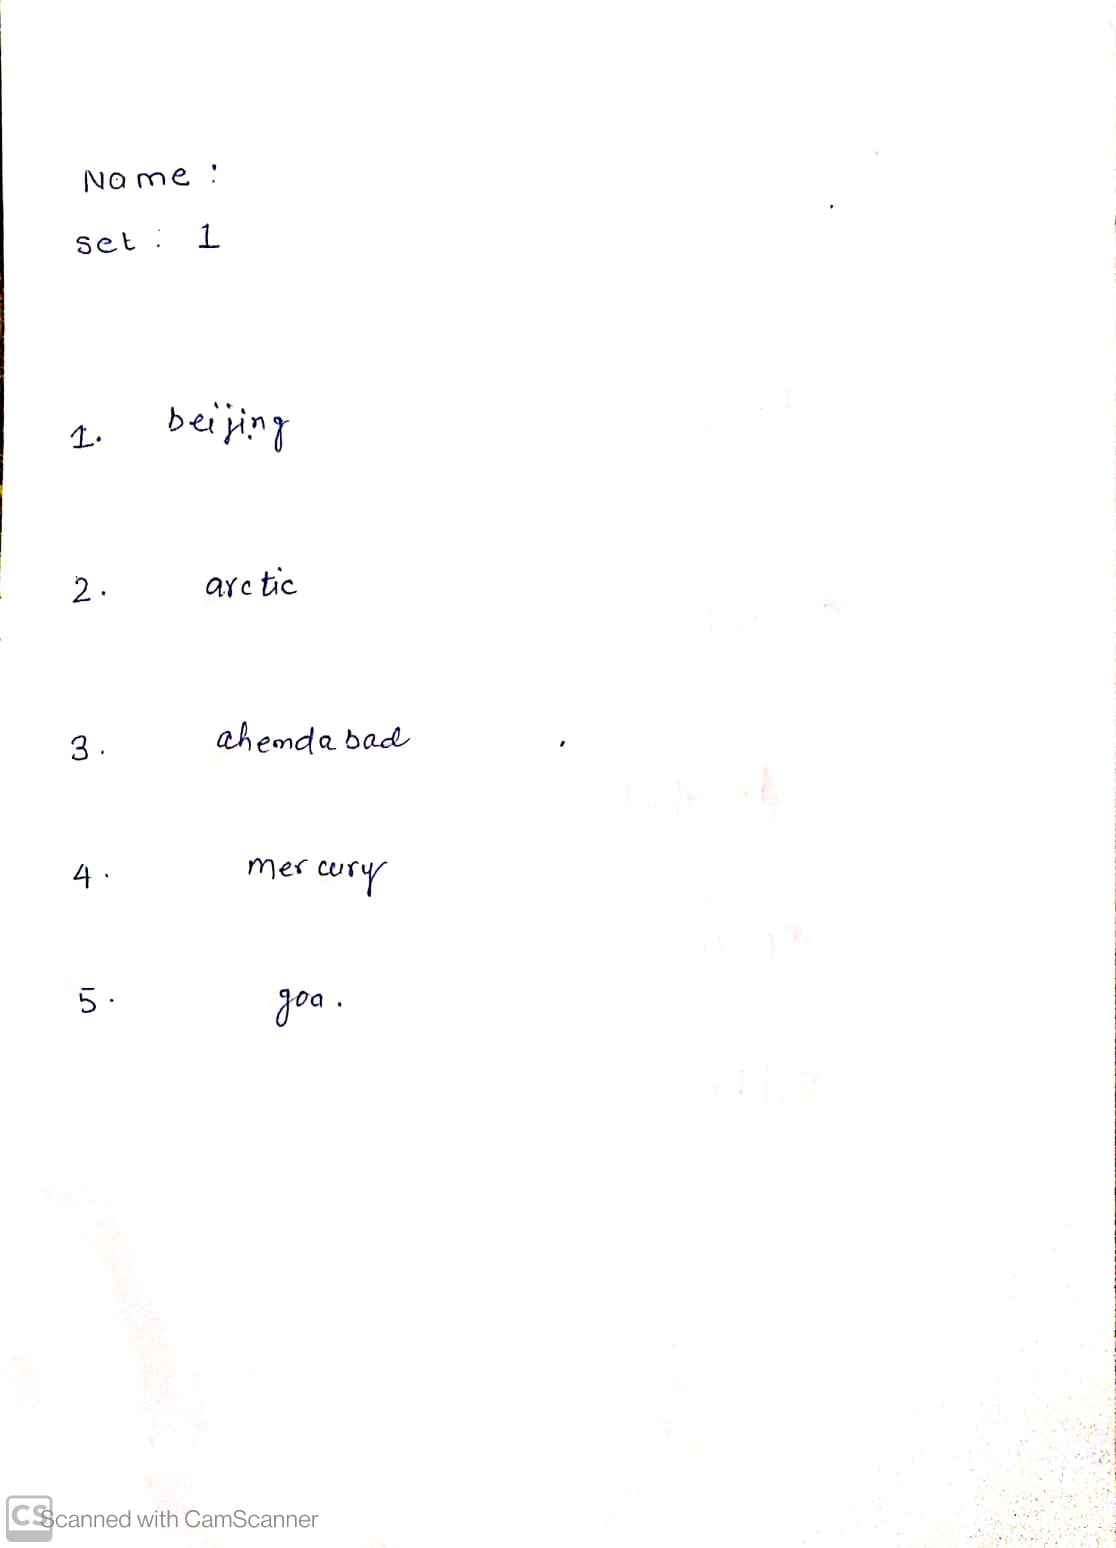 Name :
set : 1
1. beijing
2. arctic
3. ahemdabad
4. mercury
5. goa.
CS Scanned with CamScanner